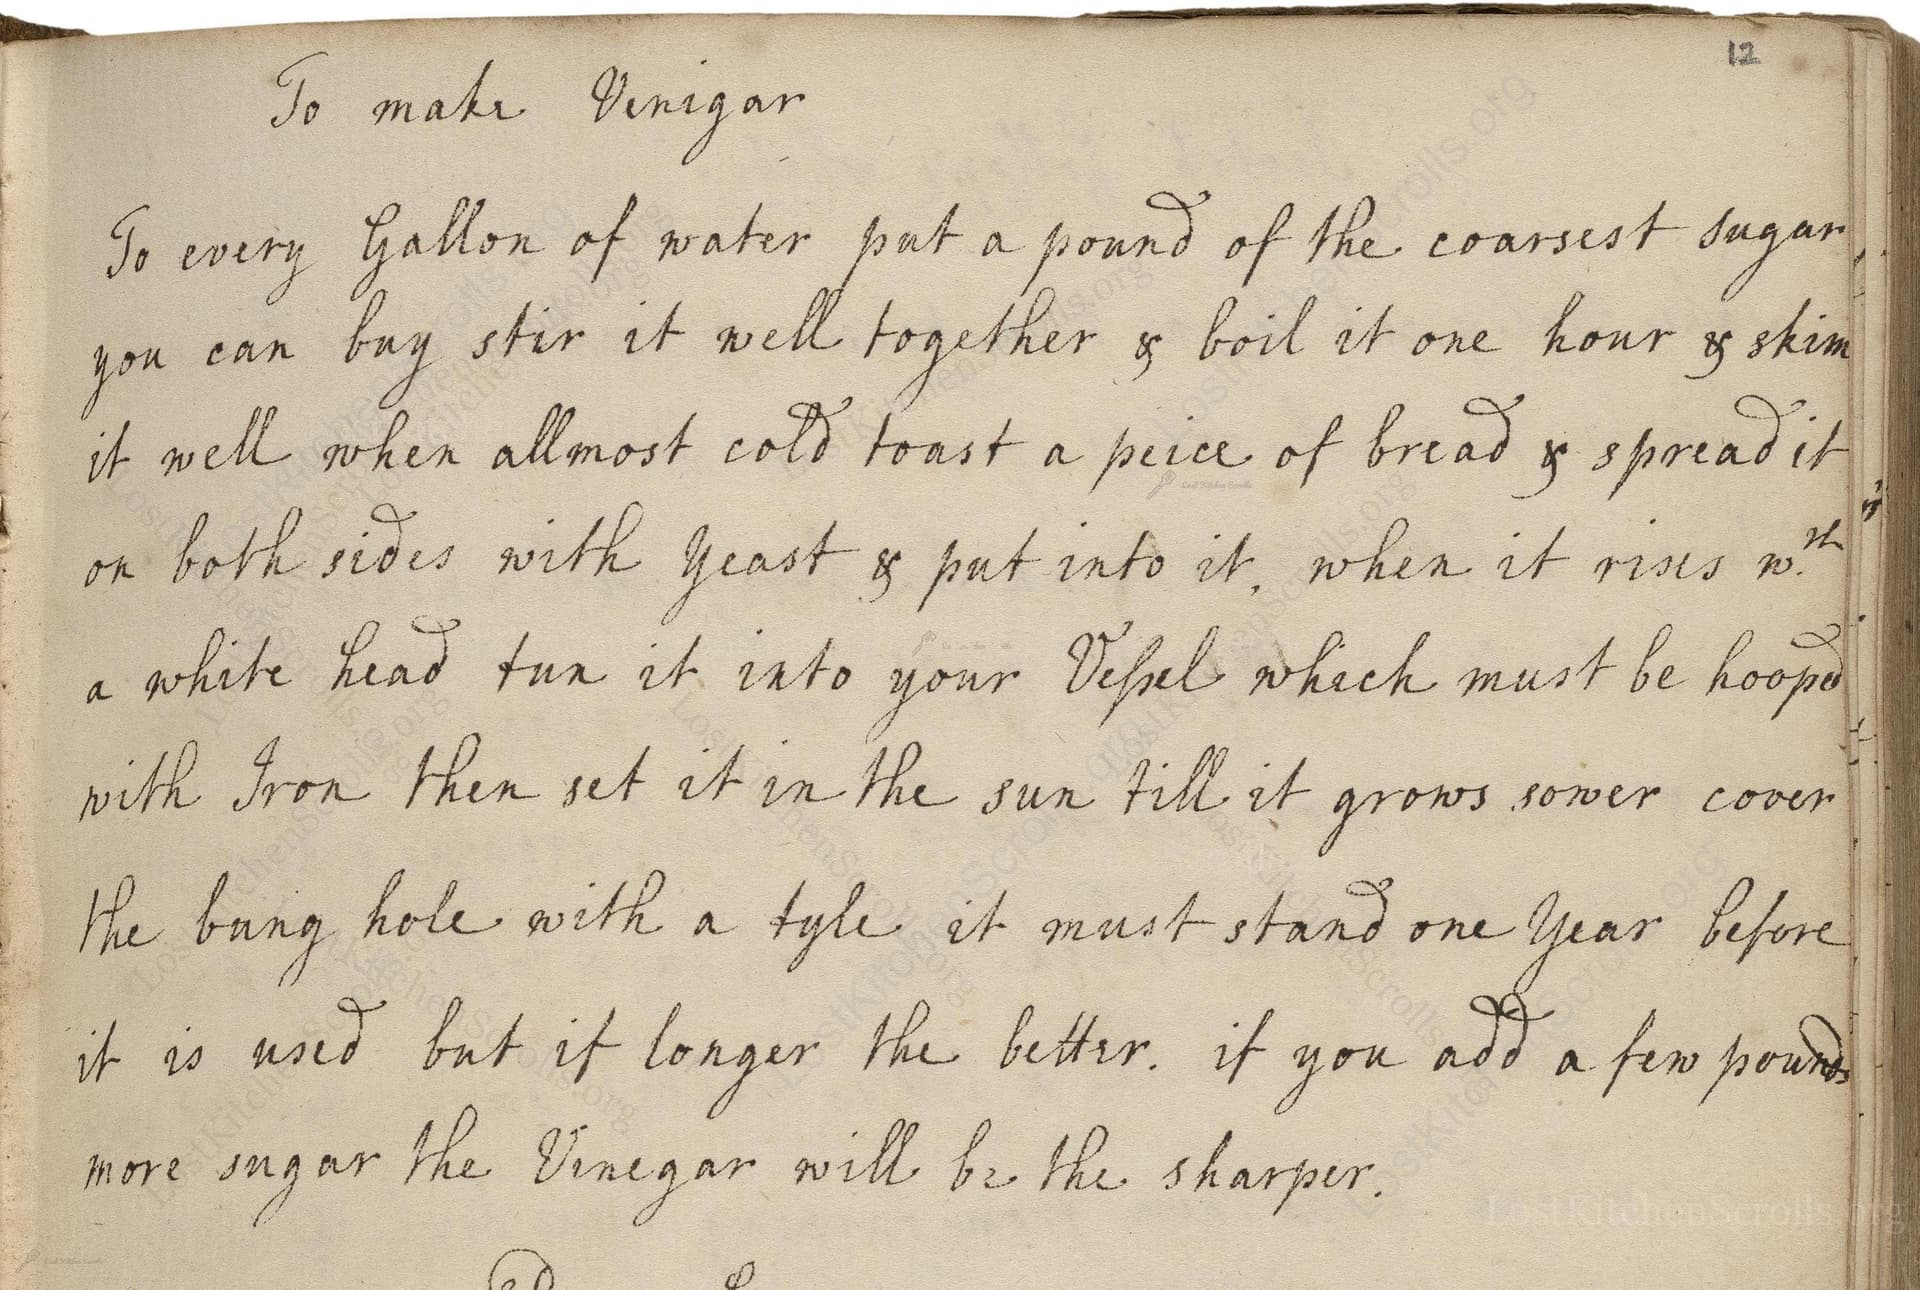 12
To make Venigar
To every Gallon of water put a pound of the coarsest sugar
you can buy stir it well together & boil it one hour & skim
it well when allmost cold toast a peice of bread & spread it
on both sides with Yeast & put into it, when it rises w.th
a white head tun it into your Veſsel which must be hooped
with Iron then set it in the sun till it grows sower cover
the bung hole with a tyle it must stand one Year before
it is used but if longer the better. if you add a few pounds
more sugar the Vinegar will be the sharper.
LostKitchenScrolls.org